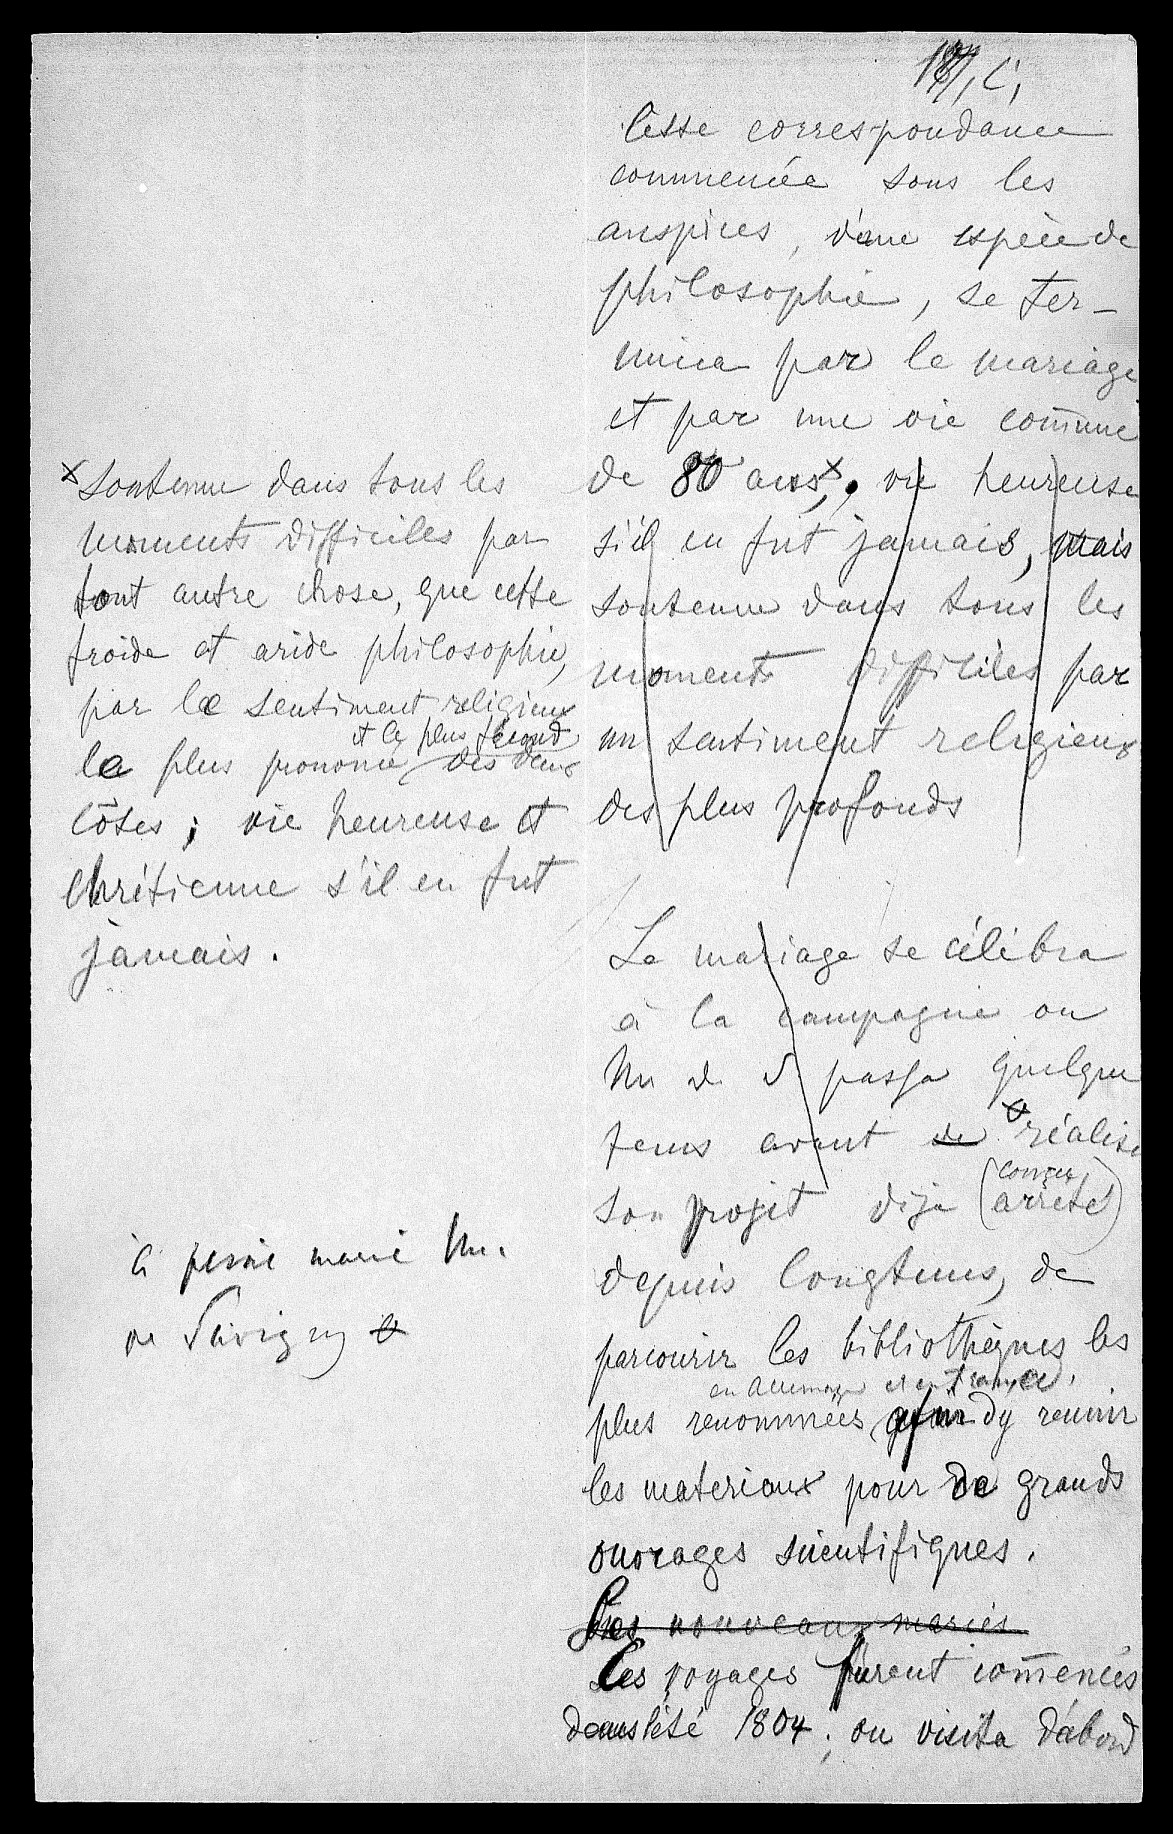 Cette correspondance
commencée sous les
auspices, d'une espèce de
philosophie, se ter-
mina par le mariage
et par une vie com̄une
de 80 ans x, vie heureuse
s'il en fut jamais, mais
soutenue dans tous les
moments difficiles par
un sentiment religieux
des plus profonds
x soutenue dans tous les
moments difficiles par
tout autre chose, que cette
froide et aride philosophie,
par le sentiment religieux
et le plus fécond
le plus prononcé des deux
côtés; vie heureuse et
chrétienne s'il en fut
jamais.
Le mariage se célébra
à la campagne ou
Mr de S. passa quelque
tems avant de réalise
conçu,
son projet déja (arrêté)
depuis longtems, de
parcourir les bibliothèques les
en Allemagne et en France,
plus renommées afin dy reunir
les materiaux pour de grands
ouvrages scientifiques.
Les nouveaux mariés
Les voyages furent com̄encés
dans l'été 1804; on visita d'abord
à peine marié Mr.
de Savigny